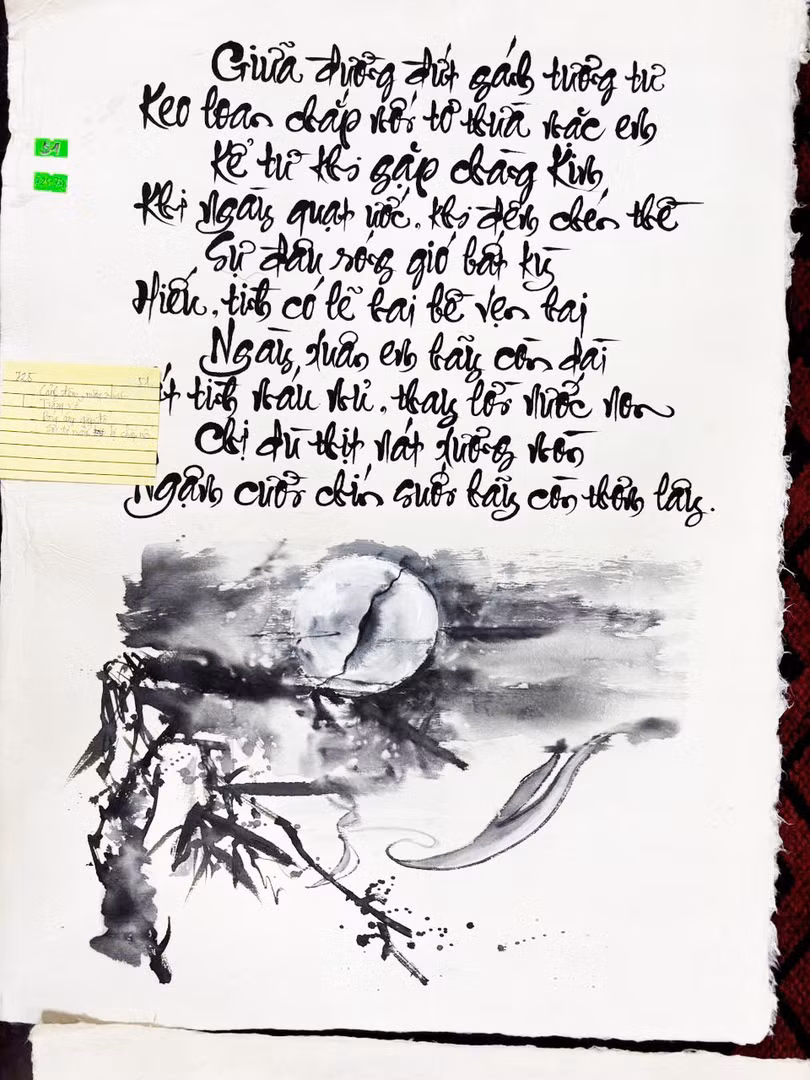 Giữa đường đứt gánh tương tư
Keo loan chắp nối tơ thừa mặc em
Kể từ khi gặp chàng Kim
51
Khi ngày quạt ước, khi đêm chén thề
Sự đâu sóng gió bất kỳ
Hiếu, tình có lẽ hai bề vẹn hai
Ngày, xuân em hãy còn dài
725 51
tình máu mủ, thay lời nước non
Chị dù thịt nát xương mòn
Ngậm cười chín suối hãy còn thơm lây.